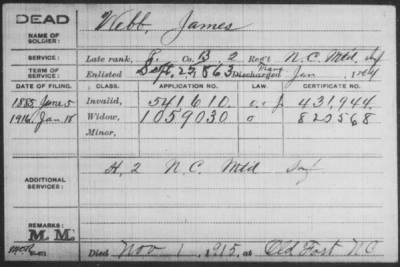 DEAD
NAME OF SOLDIER: Webb, James
SERVICE: Late rank, P. Co. B 2 Reg't N.C. Mtd. Inf
TERM OF SERVICE: Enlisted Sept. 25, 1863 Discharged Jan
DATE OF FILING. CLASS. APPLICATION NO. LAW. CERTIFICATE NO.
1885 June 5 Invalid, 541610. 431,944.
1916 Jan 18 Widow, 1059030 820568
Minor,
ADDITIONAL SERVICES: H, 2 N.C. Mtd Inf
REMARKS:
M. M.
Died Nov 1, 1915, at Old Fort NC